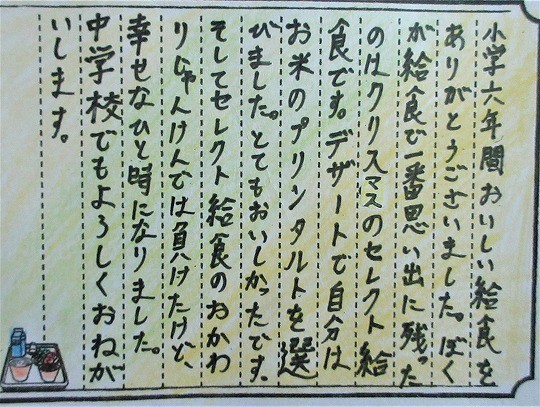 小学六年間おいしい給食を
ありがとうございました。ぼく
が給食で一番思い出に残った
のはクリスマスのセレクト給
食です。デザートで自分は
お米のプリンタルトを選
びました。とてもおいしかったです。
そしてセレクト給食のおかわ
りじゃんけんでは負けたけど、
幸せなひと時になりました。
中学校でもよろしくおねが
いします。